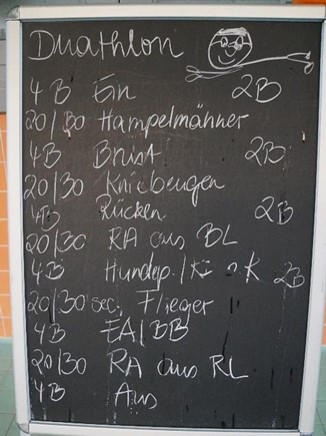 Duathlon
4B Ein 2B
20/30 Hampelmänner
4B Brust 2B
20/30 Kniebeugen
4B Rücken 2B
20/30 RA aus BL
4B Hundep./Ki o K 2B
20/30 sec. Flieger
4B EA/BB
20/30 RA aus RL
4B Aus